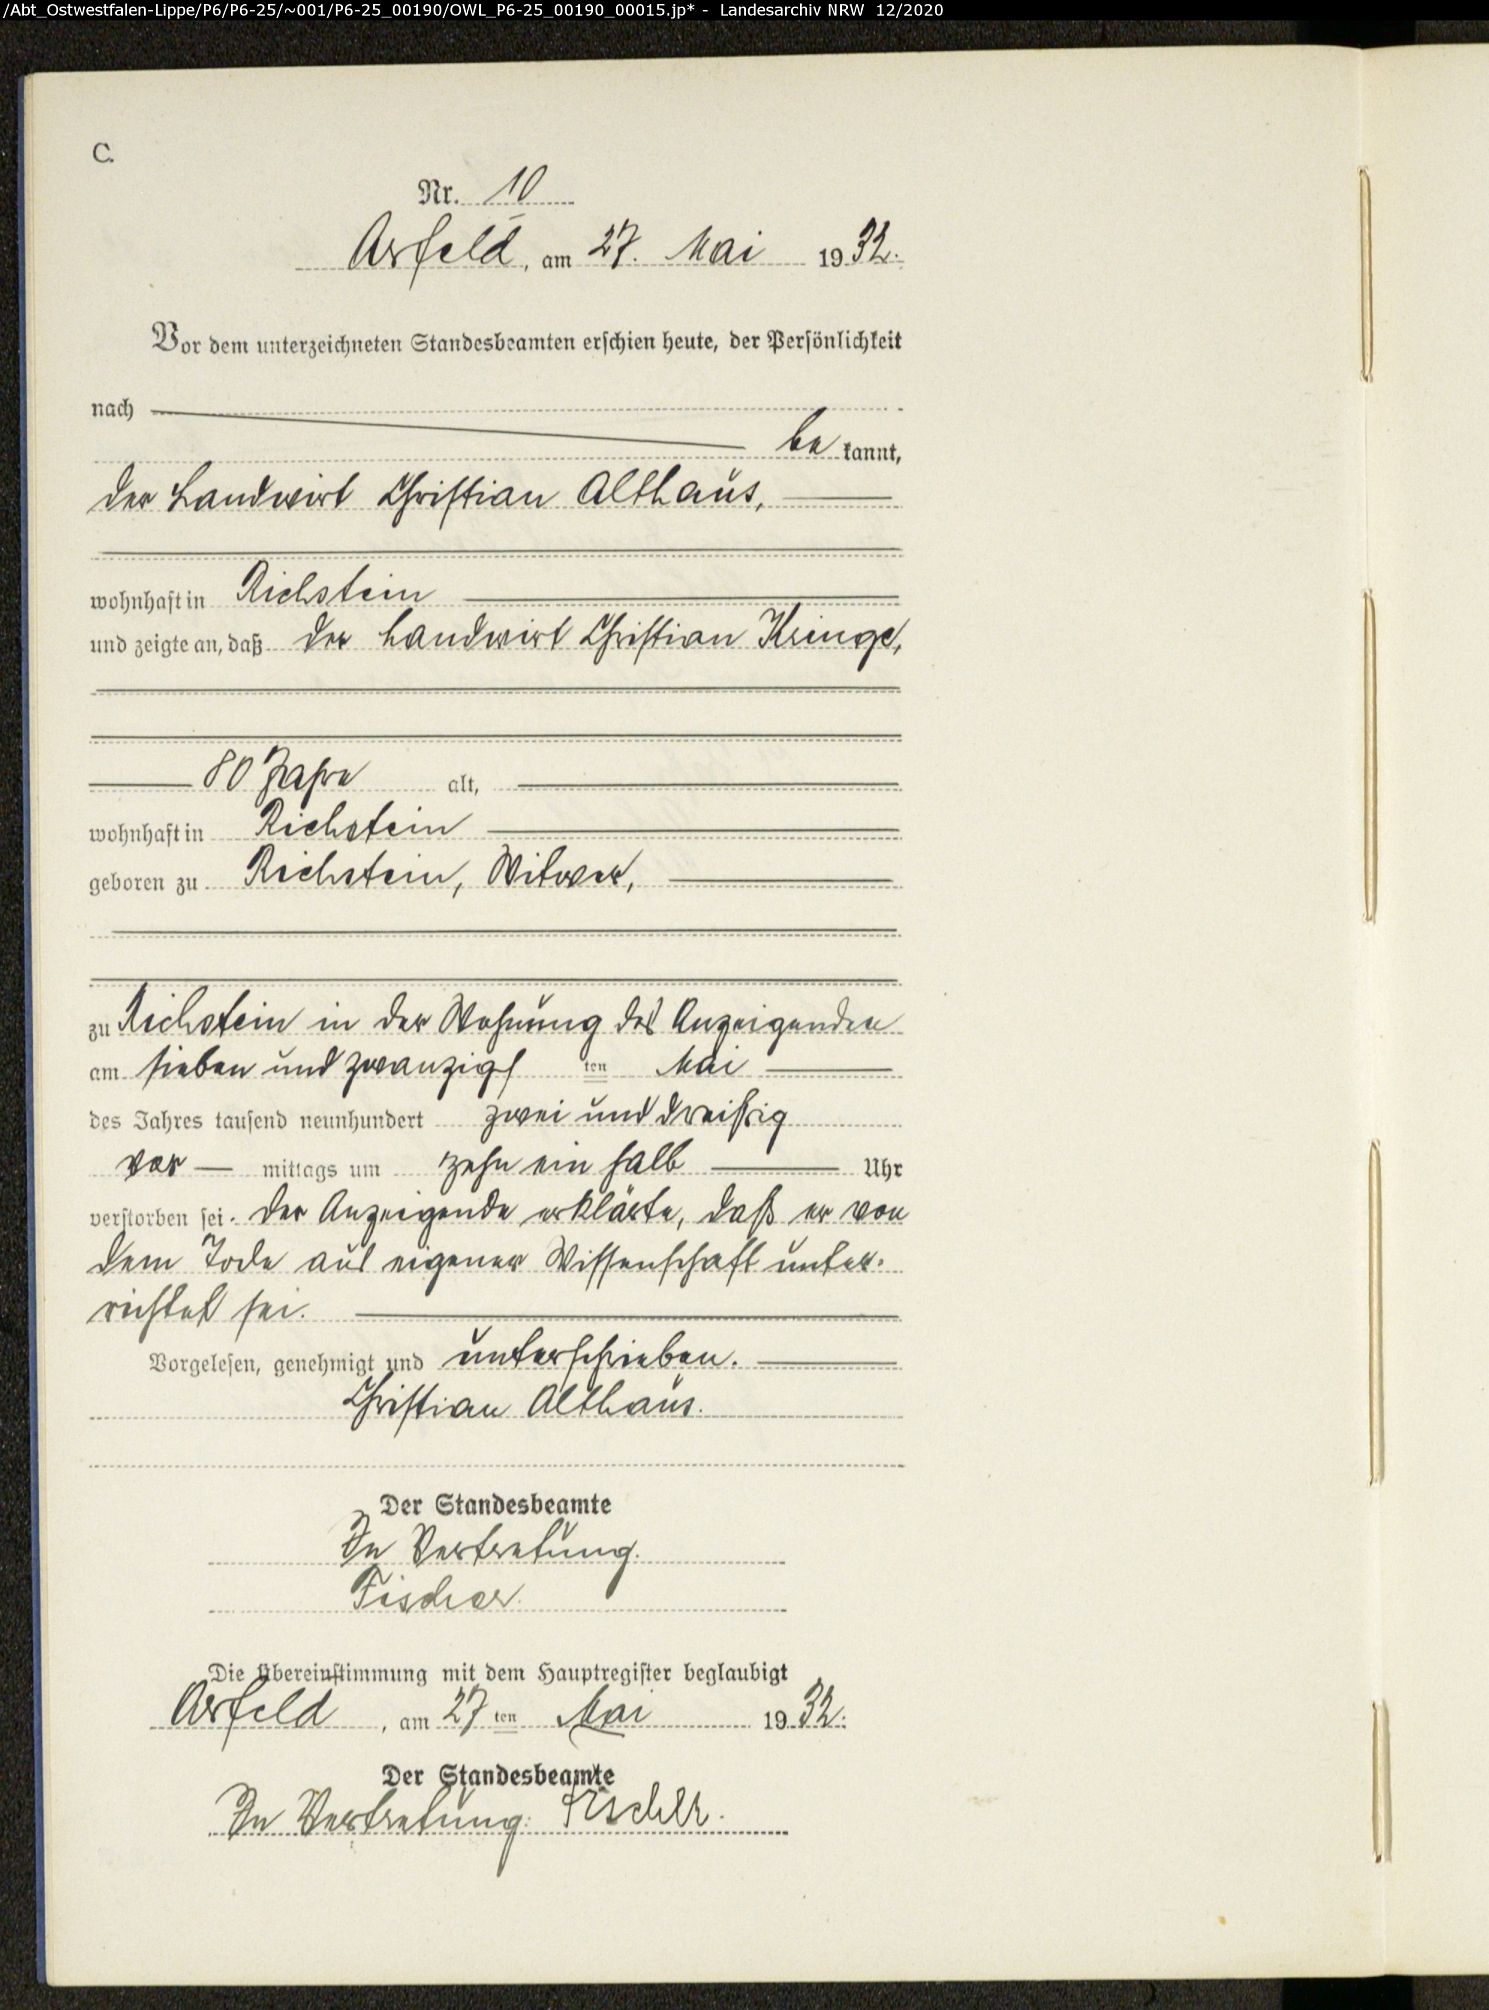 /Abt_Ostwestfalen-Lippe/P6/P6-25/~001/P6-25_00190/OWL_P6-25_00190_00015.jp* - Landesarchiv NRW 12/2020
C.
Nr. 10
Arfeld, am 27. Mai 1932.
Vor dem unterzeichneten Standesbeamten erschien heute, der Persönlichkeit
nach
be kannt,
der Landwirt Christian Althaus,
wohnhaft in Richstein
und zeigte an, daß der Landwirt Christian Kringe,
80 Jahre alt,
wohnhaft in Richstein
geboren zu Richstein, Witwer,
zu Richstein in der Wohnung des Anzeigenden
am sieben und zwanzigs ten Mai
des Jahres tausend neunhundert zwei und dreißig
vor mittags um zehn ein halb Uhr
verstorben sei. Der Anzeigende erklärte, daß er von
dem Tode aus eigener Wissenschaft unter-
richtet sei.
Vorgelesen, genehmigt und unterschrieben.
Christian Althaus.
Der Standesbeamte
In Vertretung.
Fischer.
Die Übereinstimmung mit dem Hauptregister beglaubigt
Arfeld, am 27 ten Mai 1932.
Der Standesbeamte
In Vertretung: Fischer.